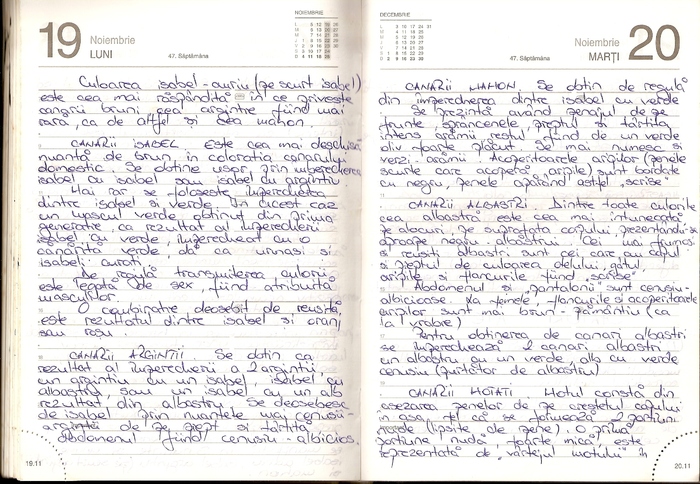 19 Noiembrie
LUNI
47. Săptămâna
NOIEMBRIE
Culoarea isabel-auriu (pe scurt isabel)
este cea mai răspândită în ce privește
canarii bruni, cea argintie fiind mai
rară, ca de altfel și cea mahon.
CANARII ISABEL. Este cea mai deschisă
nuanță de brun, în colorația canarului
domestic. Se obține ușor prin împerecherea
isabel cu isabel sau isabel cu argintiu.
Mai rar se folosește împerecherea
dintre isabel și verde. În acest caz
un mascul verde, obținut din prima
generație, ca rezultat al împerecherii
isabel cu verde, împerecheat cu o
canăriță verde, dă ca urmași și
isabeli curați.
De regulă transmiterea culorii
este legată de sex, fiind atribuită
masculilor.
O combinație deosebit de reușită,
este rezultatul dintre isabel și oranj
sau roșu.
CANARII ARGINTII. Se obțin ca
rezultat al împerecherii a 2 argintii,
un argintiu cu un isabel, isabel cu
albastru, sau un isabel cu un alb
rezultat din albastru. Se deosebesc
de isabel prin nuanțele mai cenușii-
argintii de pe piept și târtiță
abdomenul fiind cenușiu-albicios.
19.11
DECEMBRIE
47. Săptămâna
Noiembrie 20
MARȚI
CANARII MAHON. Se obțin de regulă
din împerecherea dintre isabel cu verde
Se prezintă având penajul de pe
frunte, sprâncenele, pieptul și târtița
intens arămii, restul fiind de un verde
oliv foarte plăcut. Se mai numesc și
verzi-arămii. Acoperitoarele aripilor (penele
scurte care acoperă aripile) sunt bordate
cu negru, penele apărând astfel "scrise"
CANARII ALBAȘTRI. Dintre toate culorile
cea albastră este cea mai întunecată,
pe alocuri, pe suprafața capului prezentându-se
aproape negru-albăstrui. Cei mai frumoși
și reușiți albaștri sunt cei care au capul
și pieptul de culoarea oțelului, gâtul,
aripile și flancurile fiind "scrise"
Abdomenul și "pantalonii" sunt cenușiu-
albicioase. La femele, flancurile și acoperitoarele
aripilor sunt mai brun-pământiu (ca
la vrabie)
Pentru obținerea de canari albaștri
se împerechează 2 canari albaștri
un albastru cu un verde, alb cu verde
cenușiu (purtător de albastru)
CANARII MOȚAȚI Moțul constă din
așezarea penelor de pe creștetul capului
în așa fel că se formează 2 porțiuni
nude (lipsite de pene). O primă
porțiune nudă, foarte mică, este
reprezentată de "vârtejul moțului" în
20.11